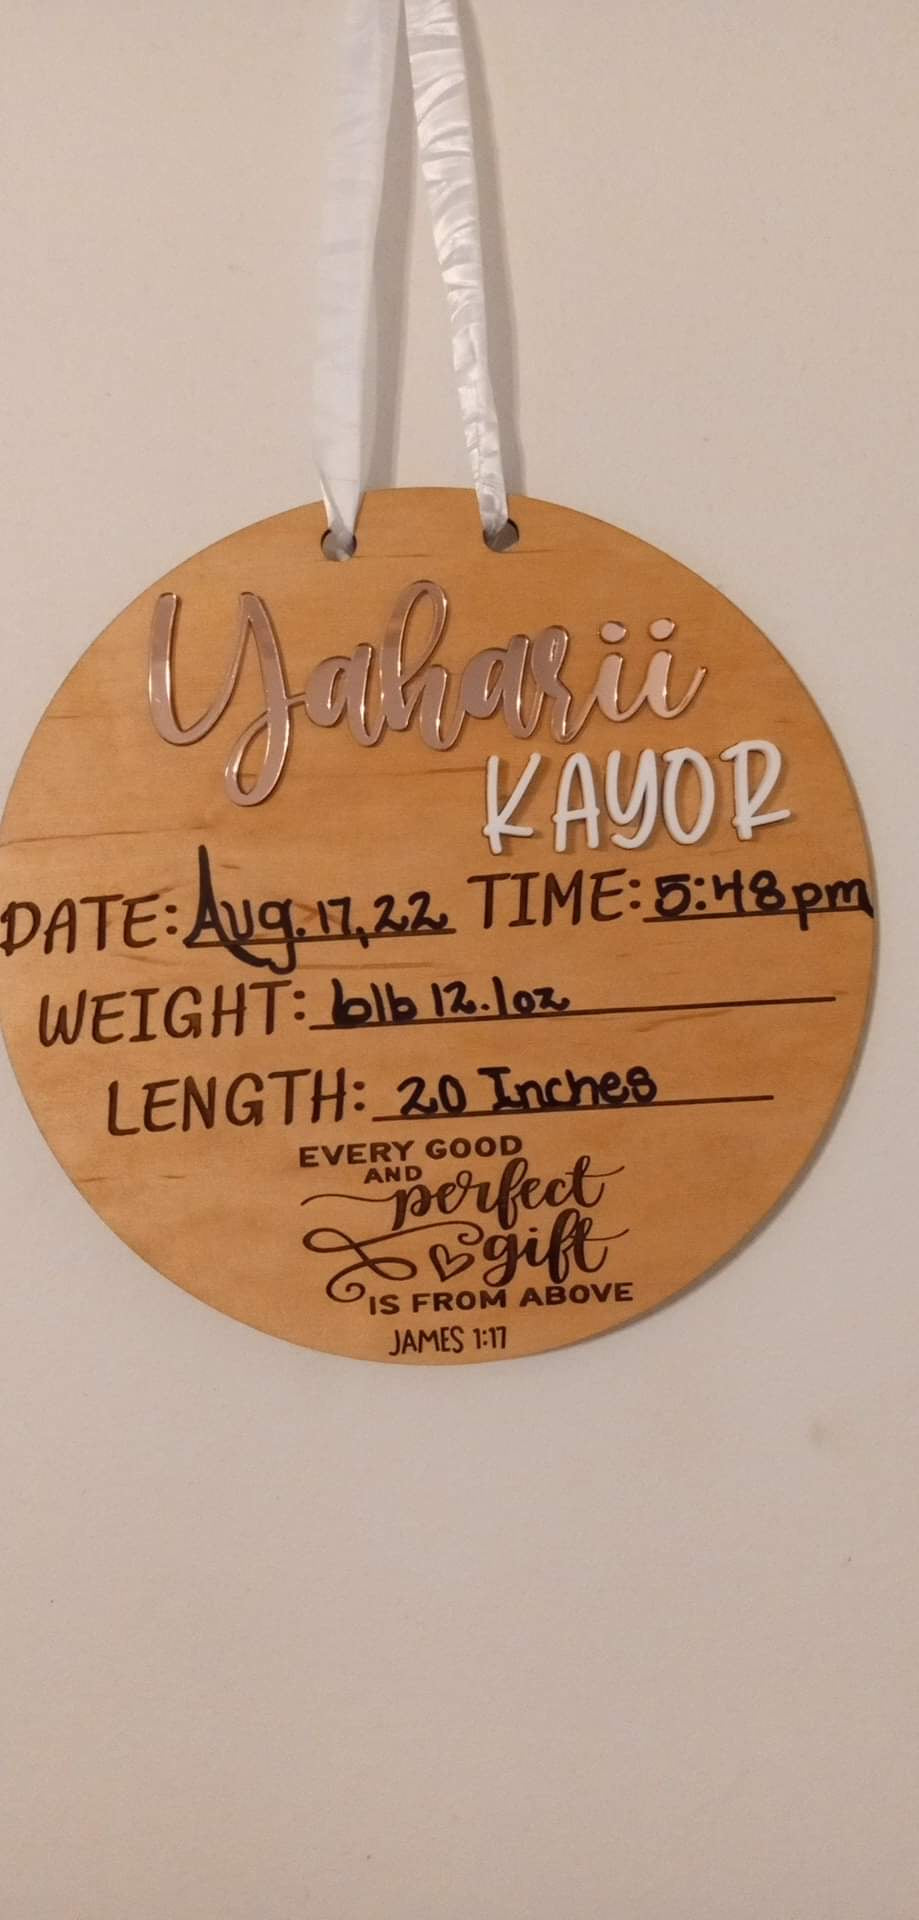 Yaharii
KAYOR
DATE: Aug. 17, 22 TIME: 5:48pm
WEIGHT: 6lb 12.1oz
LENGTH: 20 Inches
EVERY GOOD
AND
perfect
gift
IS FROM ABOVE
JAMES 1:17